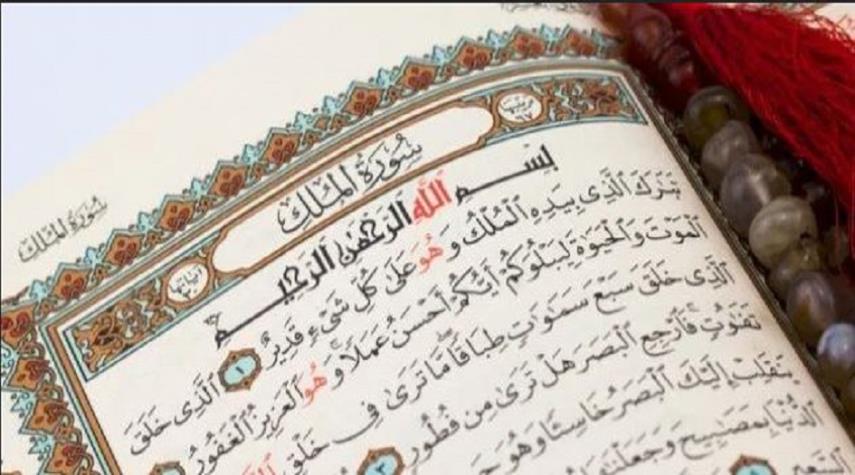 سُورَةُ المُلْكِ
سُورَةُ المُلْكِ
بِسْمِ اللَّهِ الرَّحْمَٰنِ الرَّحِيمِ
تَبَٰرَكَ ٱلَّذِى بِيَدِهِ ٱلْمُلْكُ وَهُوَ عَلَىٰ كُلِّ شَىْءٍ قَدِيرٌ ١ ٱلَّذِى خَلَقَ
ٱلْمَوْتَ وَٱلْحَيَوٰةَ لِيَبْلُوَكُمْ أَيُّكُمْ أَحْسَنُ عَمَلًا وَهُوَ ٱلْعَزِيزُ ٱلْغَفُورُ
ٱلَّذِى خَلَقَ سَبْعَ سَمَٰوَٰتٍ طِبَاقًا مَّا تَرَىٰ فِى خَلْقِ
تَفَٰوُتٍ فَٱرْجِعِ ٱلْبَصَرَ هَلْ تَرَىٰ مِن فُطُورٍ ٣
يَنقَلِبْ إِلَيْكَ ٱلْبَصَرُ خَاسِئًا وَهُوَ
ٱلدُّنْيَا بِمَصَٰبِيحَ وَجَعَلْنَٰهَا